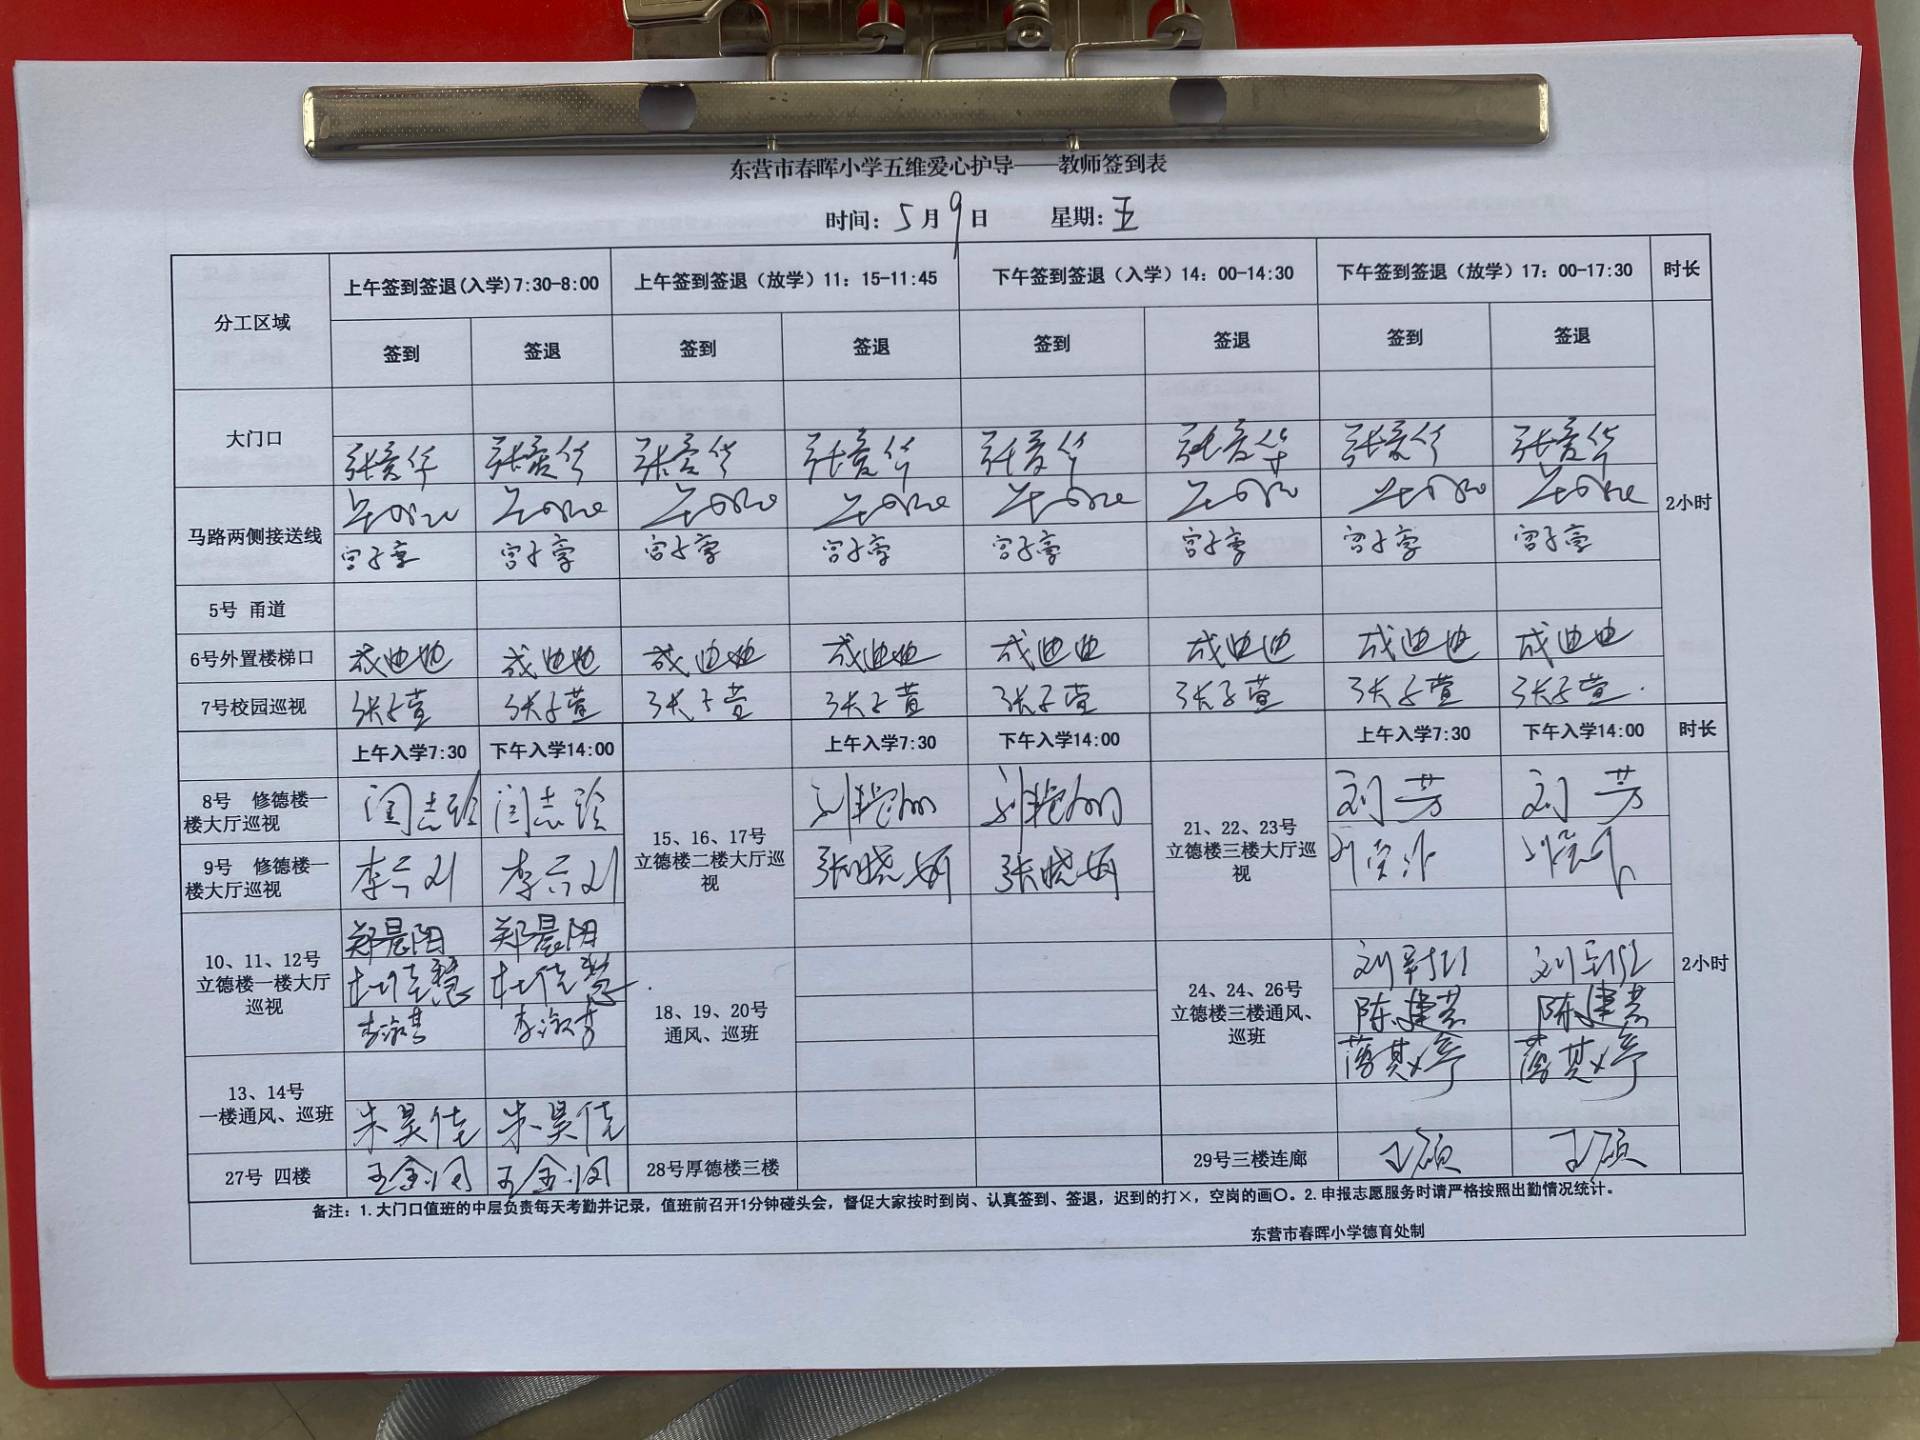 东营市春晖小学五维爱心护导——教师签到表
时间：5月9日 星期：五
分工区域 上午签到签退(入学)7:30-8:00 上午签到签退（放学）11：15-11:45 下午签到签退（入学）14：00-14:30 下午签到签退（放学）17：00-17:30 时长
签到 签退 签到 签退 签到 签退 签到 签退
大门口 张爱华 张爱华 张爱华 张爱华 张爱华 张爱华 张爱华 张爱华
马路两侧接送线
宫子 宫子 宫子 宫子 宫子 宫子 宫子 宫子
2小时
5号 甬道
6号外置楼梯口 成迪迪 成迪迪 成迪迪 成迪迪 成迪迪 成迪迪 成迪迪 成迪迪
7号校园巡视 张子萱 张子萱 张子萱 张子萱 张子萱 张子萱 张子萱 张子萱
上午入学7:30 下午入学14:00 上午入学7:30 下午入学14:00 上午入学7:30 下午入学14:00 时长
8号 修德楼一
楼大厅巡视 闫志珍 闫志珍
9号 修德楼一
楼大厅巡视 李
10、11、12号
立德楼一楼大厅
巡视
郑晨阳 郑晨阳
杜佳慧 杜佳慧
李淑芳
13、14号
一楼通风、巡班
朱昊倩 朱昊倩
27号 四楼 王金
15、16、17号
立德楼二楼大厅巡
视
刘艳丽 刘艳丽
张晓娟 张晓娟
18、19、20号
通风、巡班
28号厚德楼三楼
21、22、23号
立德楼三楼大厅巡
视
刘芳 刘芳
24、24、26号
立德楼三楼通风、
巡班
刘 刘
陈建芸 陈建芸
婷 婷
29号三楼连廊 王硕 王硕
2小时
备注：1.大门口值班的中层负责每天考勤并记录，值班前召开1分钟碰头会，督促大家按时到岗、认真签到、签退，迟到的打×，空岗的画〇。2.申报志愿服务时请严格按照出勤情况统计。
东营市春晖小学德育处制